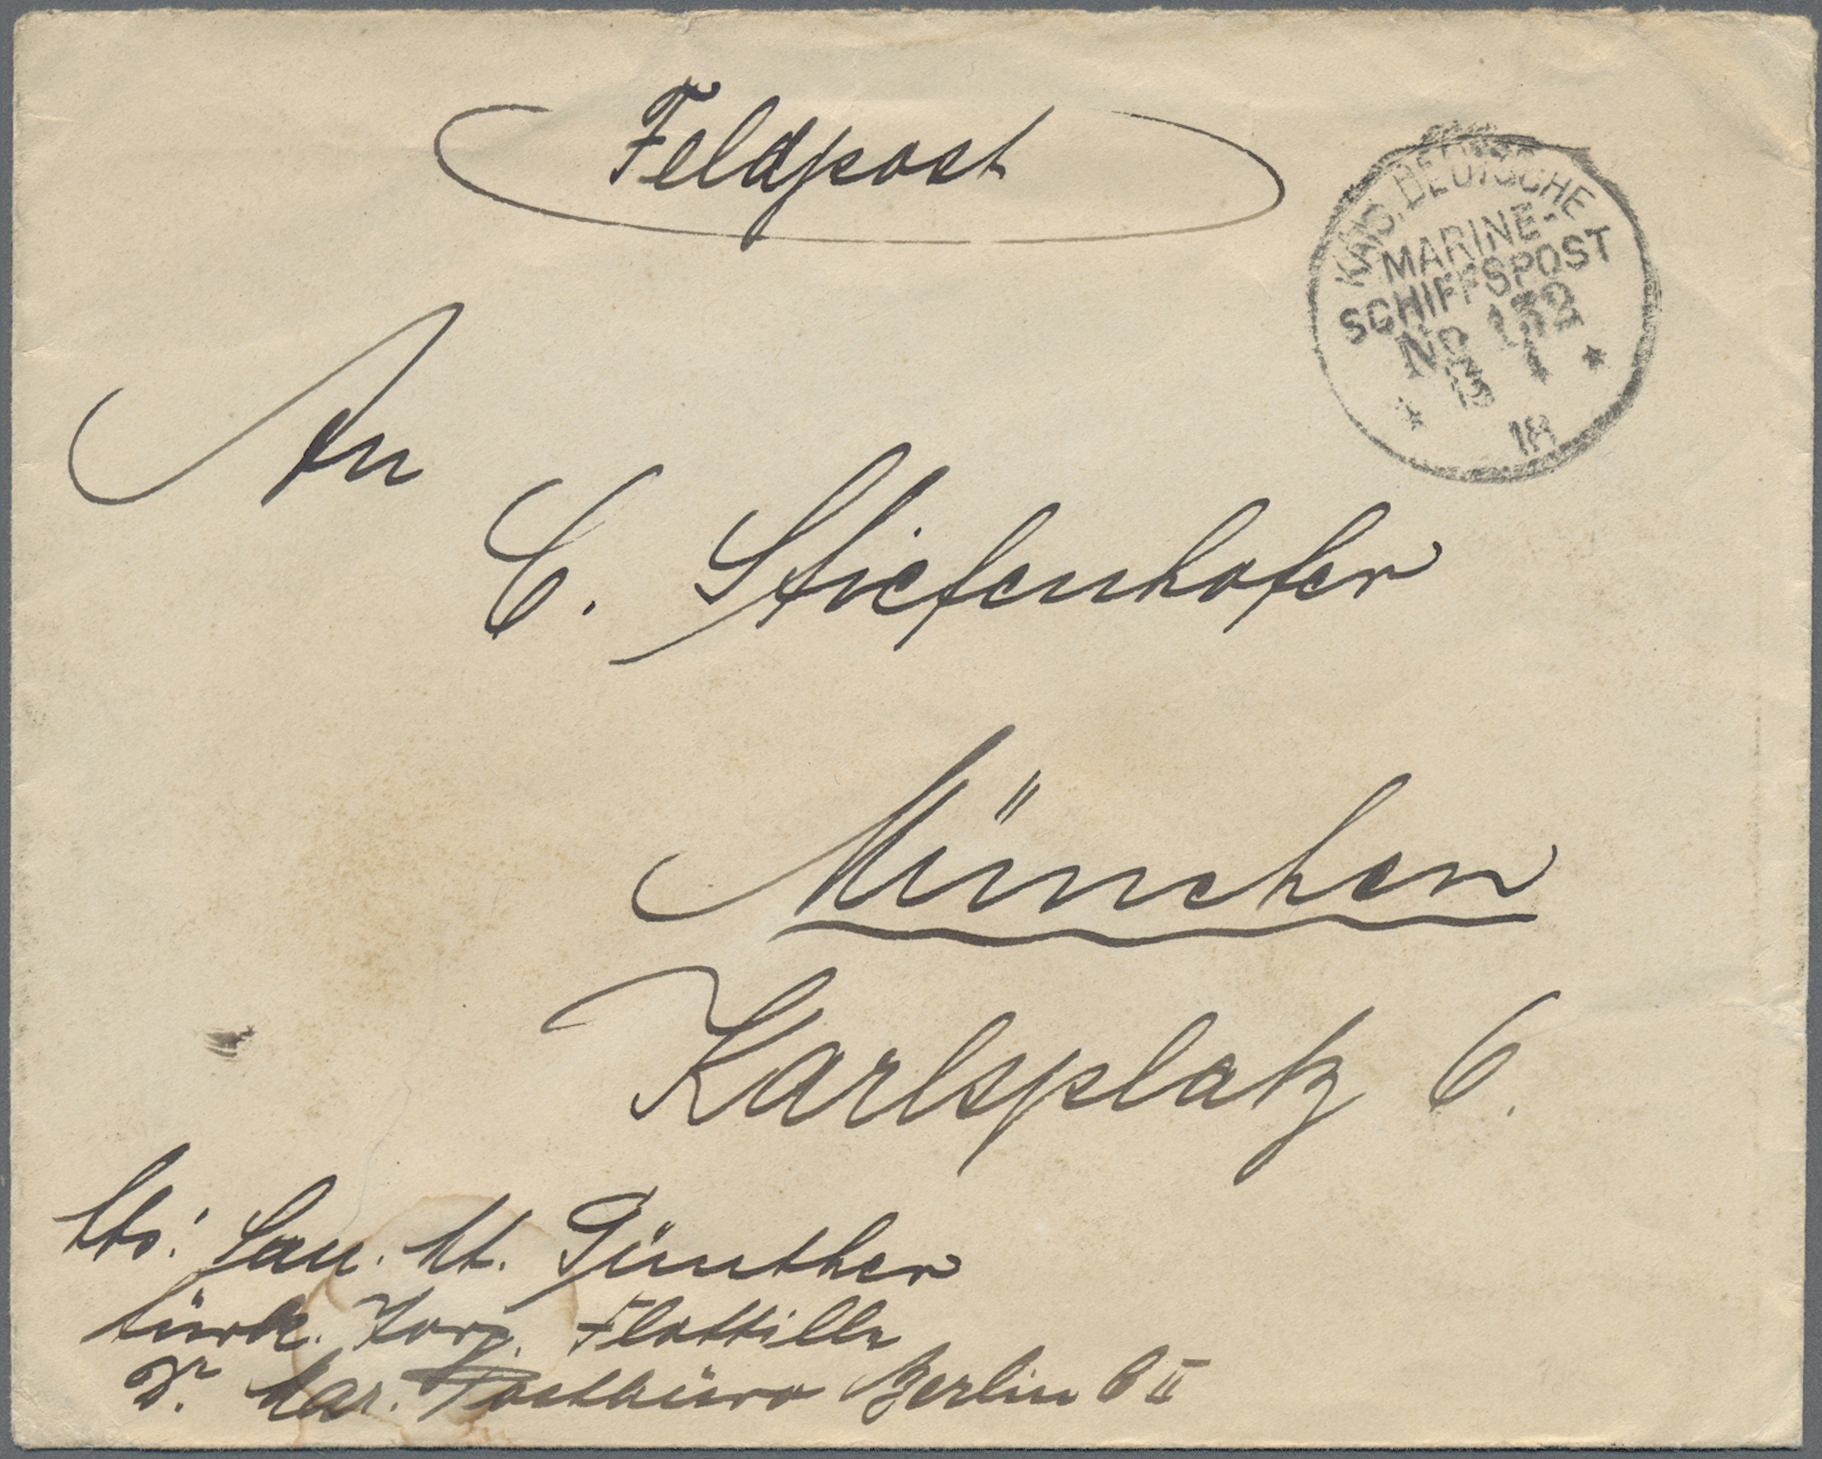 Feldpost
KAIS. DEUTSCHE
MARINE-
SCHIFFSPOST
No 132
13 1
18
An
C. Stiefenhofer
München
Karlsplatz 6.
Günther
türk. Torp. Flottille
Mar. Postbüro Berlin C II